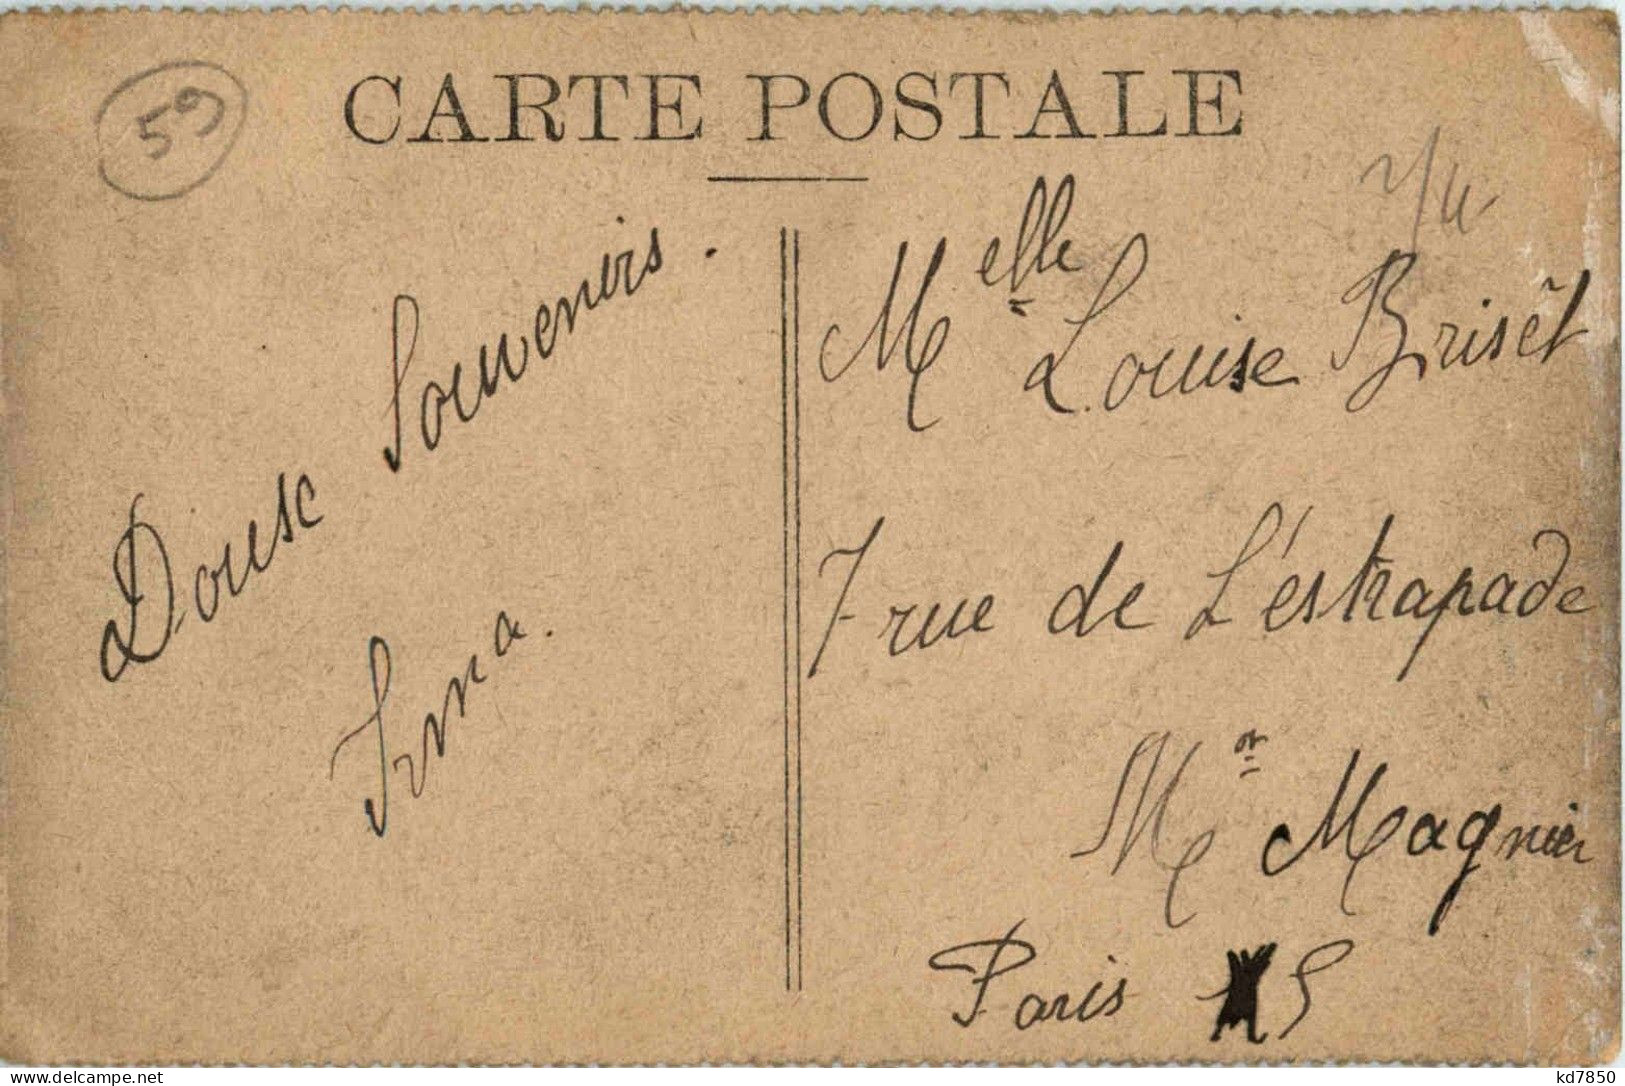 59
CARTE POSTALE
Douse Souvenirs.
Irma.
Melle Louise Brisêt
7 rue de L'estrapade
Mon Magnier
Paris 5
kd7850